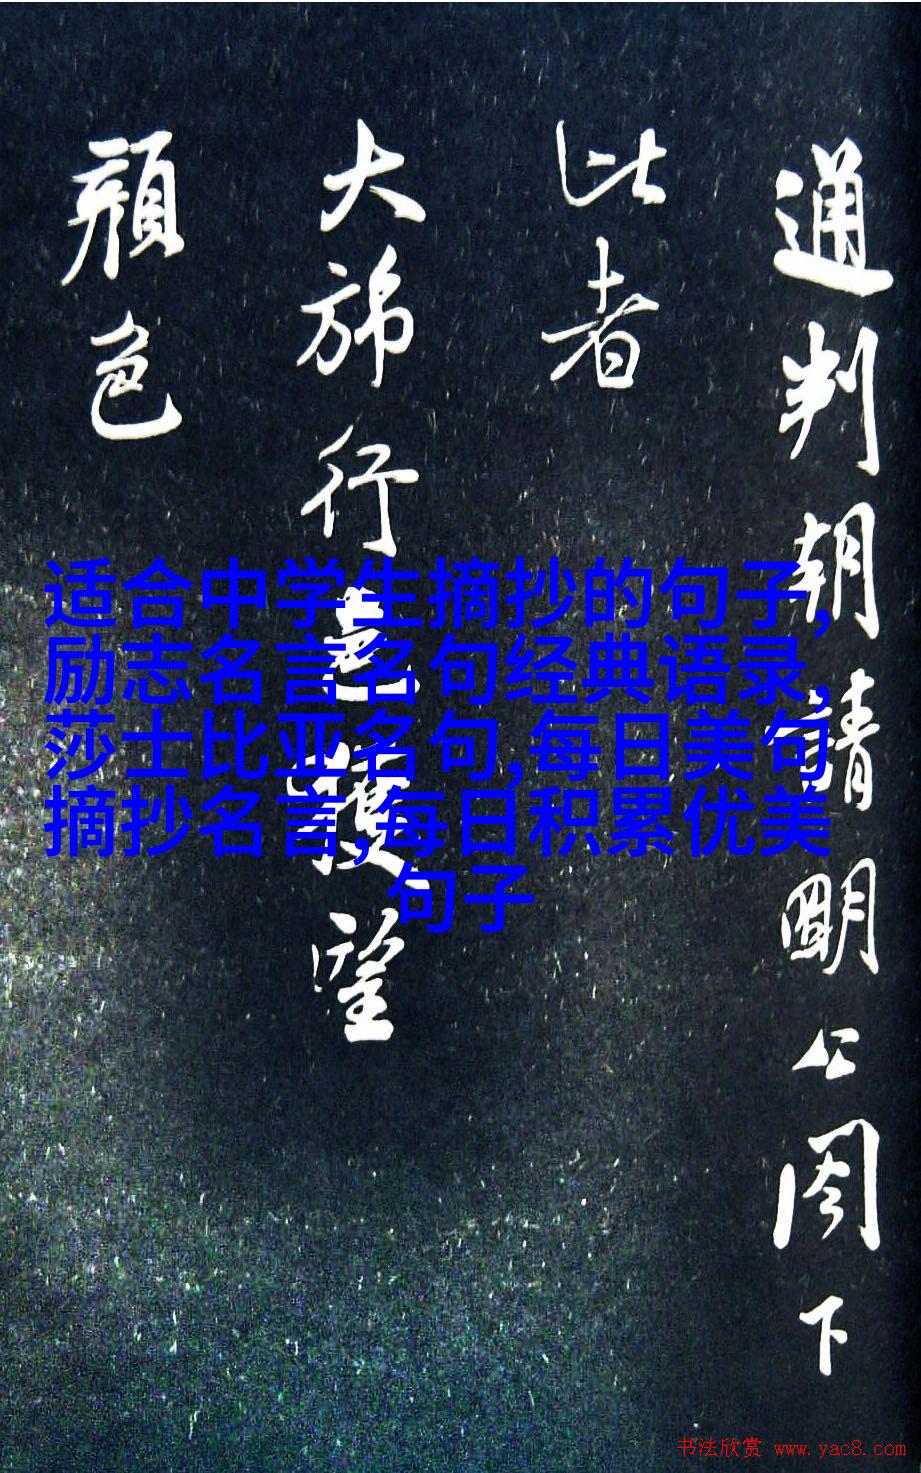 通判朝請明公閣下
此者
大旆行色獲望
顏色
适合中学生摘抄的句子,
励志名言名句经典语录,
莎士比亚名句,每日美句
摘抄名言,每日积累优美
句子
书法欣赏 www.yac8.com